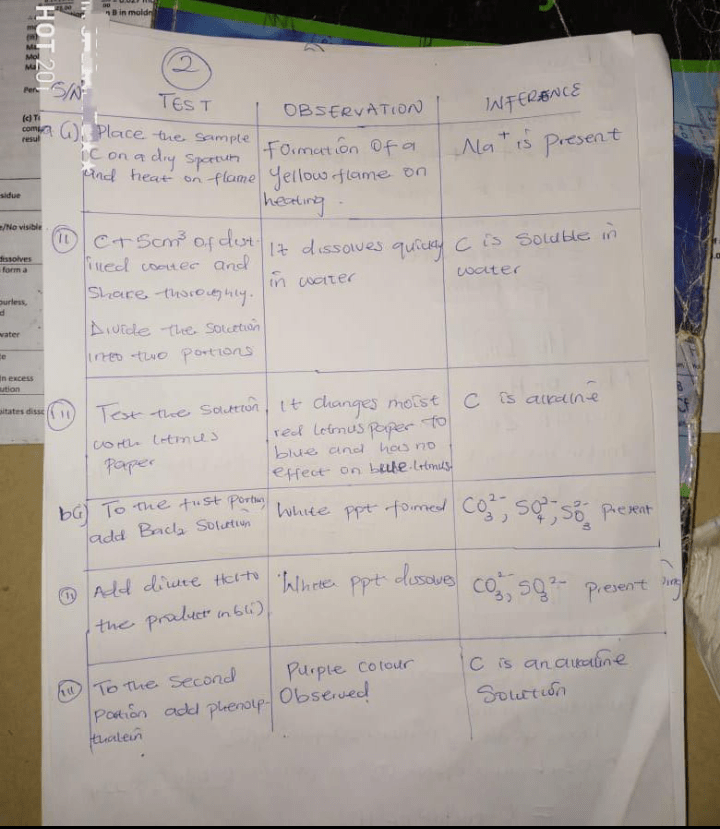 HOT 20
B in moldm
(c) T
comp
resul
sidue
e/No visible
dissolves
form a
ourless,
d
water
in excess
ution
2
S/N
TEST
OBSERVATION
INFERENCE
a (i) Place the sample
C on a dry Spatum
and heat on flame
Formation Of a
Yellow flame on
heating.
Na⁺ is present
(ii) C + 5cm³ of dist-
illed water and
Share thoroughly.
Divide the Solution
into two portions
It dissolves quickly
in water
C is Soluble in
water
(iii) Test the Solution
with litmus
Paper
It changes moist
red litmus paper to
blue and has no
effect on blue litmus
C is alkaline
b(i) To the first portion
add Bacl₂ Solution
White ppt formed
CO₃²⁻, SO₄²⁻, SO₃²⁻ Present
(ii) Add dilute Hcl to
the product in b(i)
White ppt dissolves
CO₃²⁻, SO₃²⁻ present
(iii) To the second
Portion add phenolp-
thalein
Purple colour
Observed
C is an alkaline
Solution